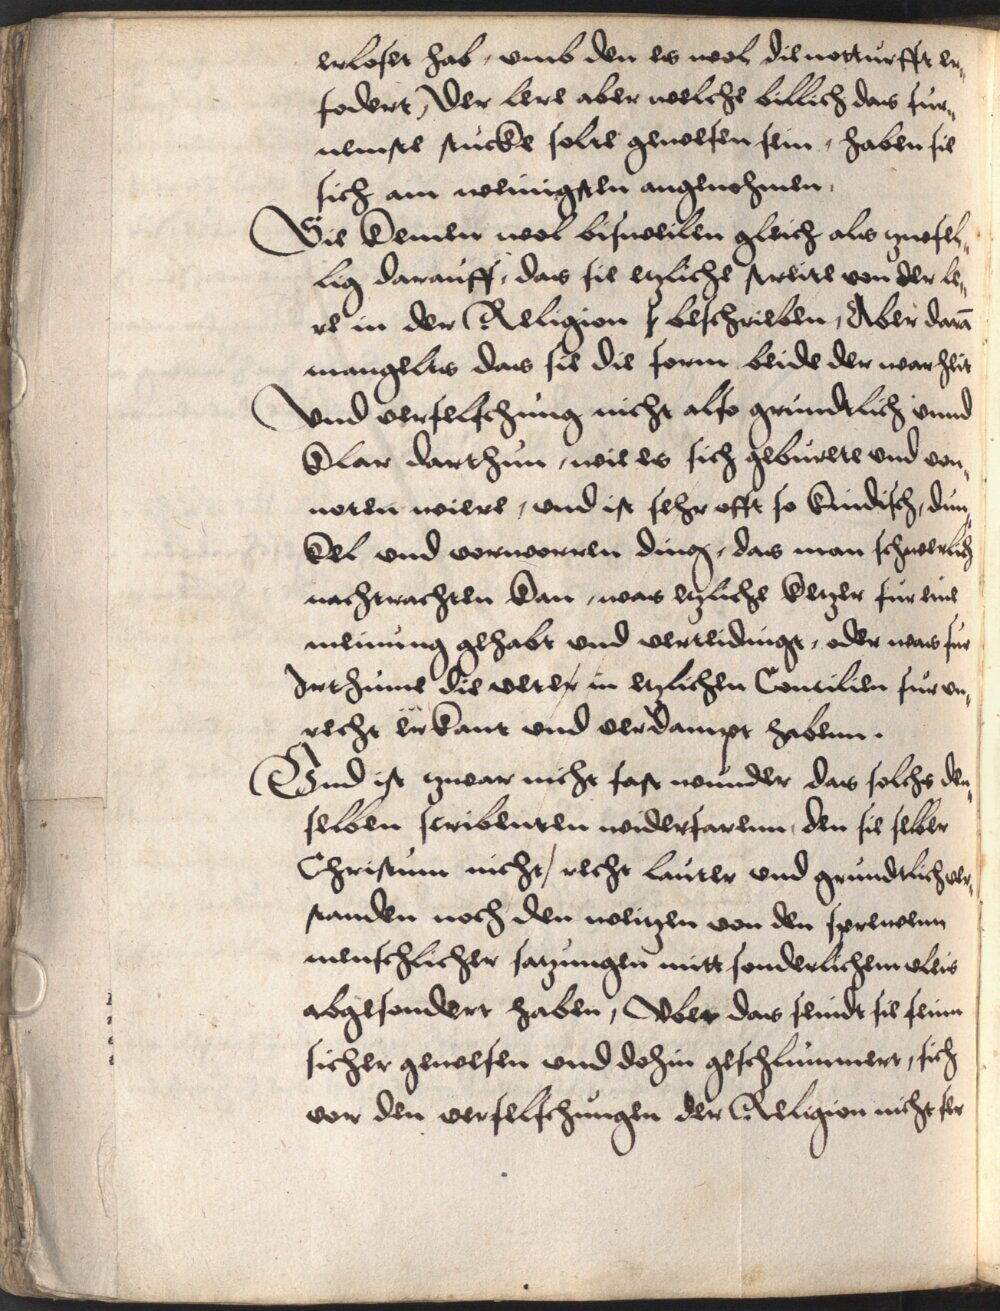 erloset hab, umb den es wol die notturfft er-
fodert, Der lere aber welche billich das fur-
nemste stucke solte gewesen sein, haben sie
sich am wenigsten angenohmen,
Sie kemen wol bisweilen gleich als zwfel-
lig darauff, das sie etzliche streite von der le-
re in der Religion beschrieben, Aber darā
mangelts das sie die form beide der warheit
Und verfelschung nicht also grundtlich unnd
klar darthun, wie es sich geburete und von-
noten were, und ist sehr offt so kindisch, dun-
kel und verworren ding, das man schwerlich
nachtrachten kan, was etzliche ketzer fur eine
meinung gehabt und verteidingt, oder was fur
Irthume die veter in etzlichen Concilien fur un-
recht erkant und verdampt habenn.
Und ist zwar nicht fast wunder das solchs den-
selben scribenten widerfarenn, den sie selber
Christum nicht recht lauter und grundtlich ver-
standen noch den weitzen von den sprewenn
menschlicher satzungen mitt sonderlichem vleis
abgesondert haben, Uber das seindt sie seinn
sicher gewesen und dohin geschlummert, sich
vor den verfelschungen der Religion nicht ser